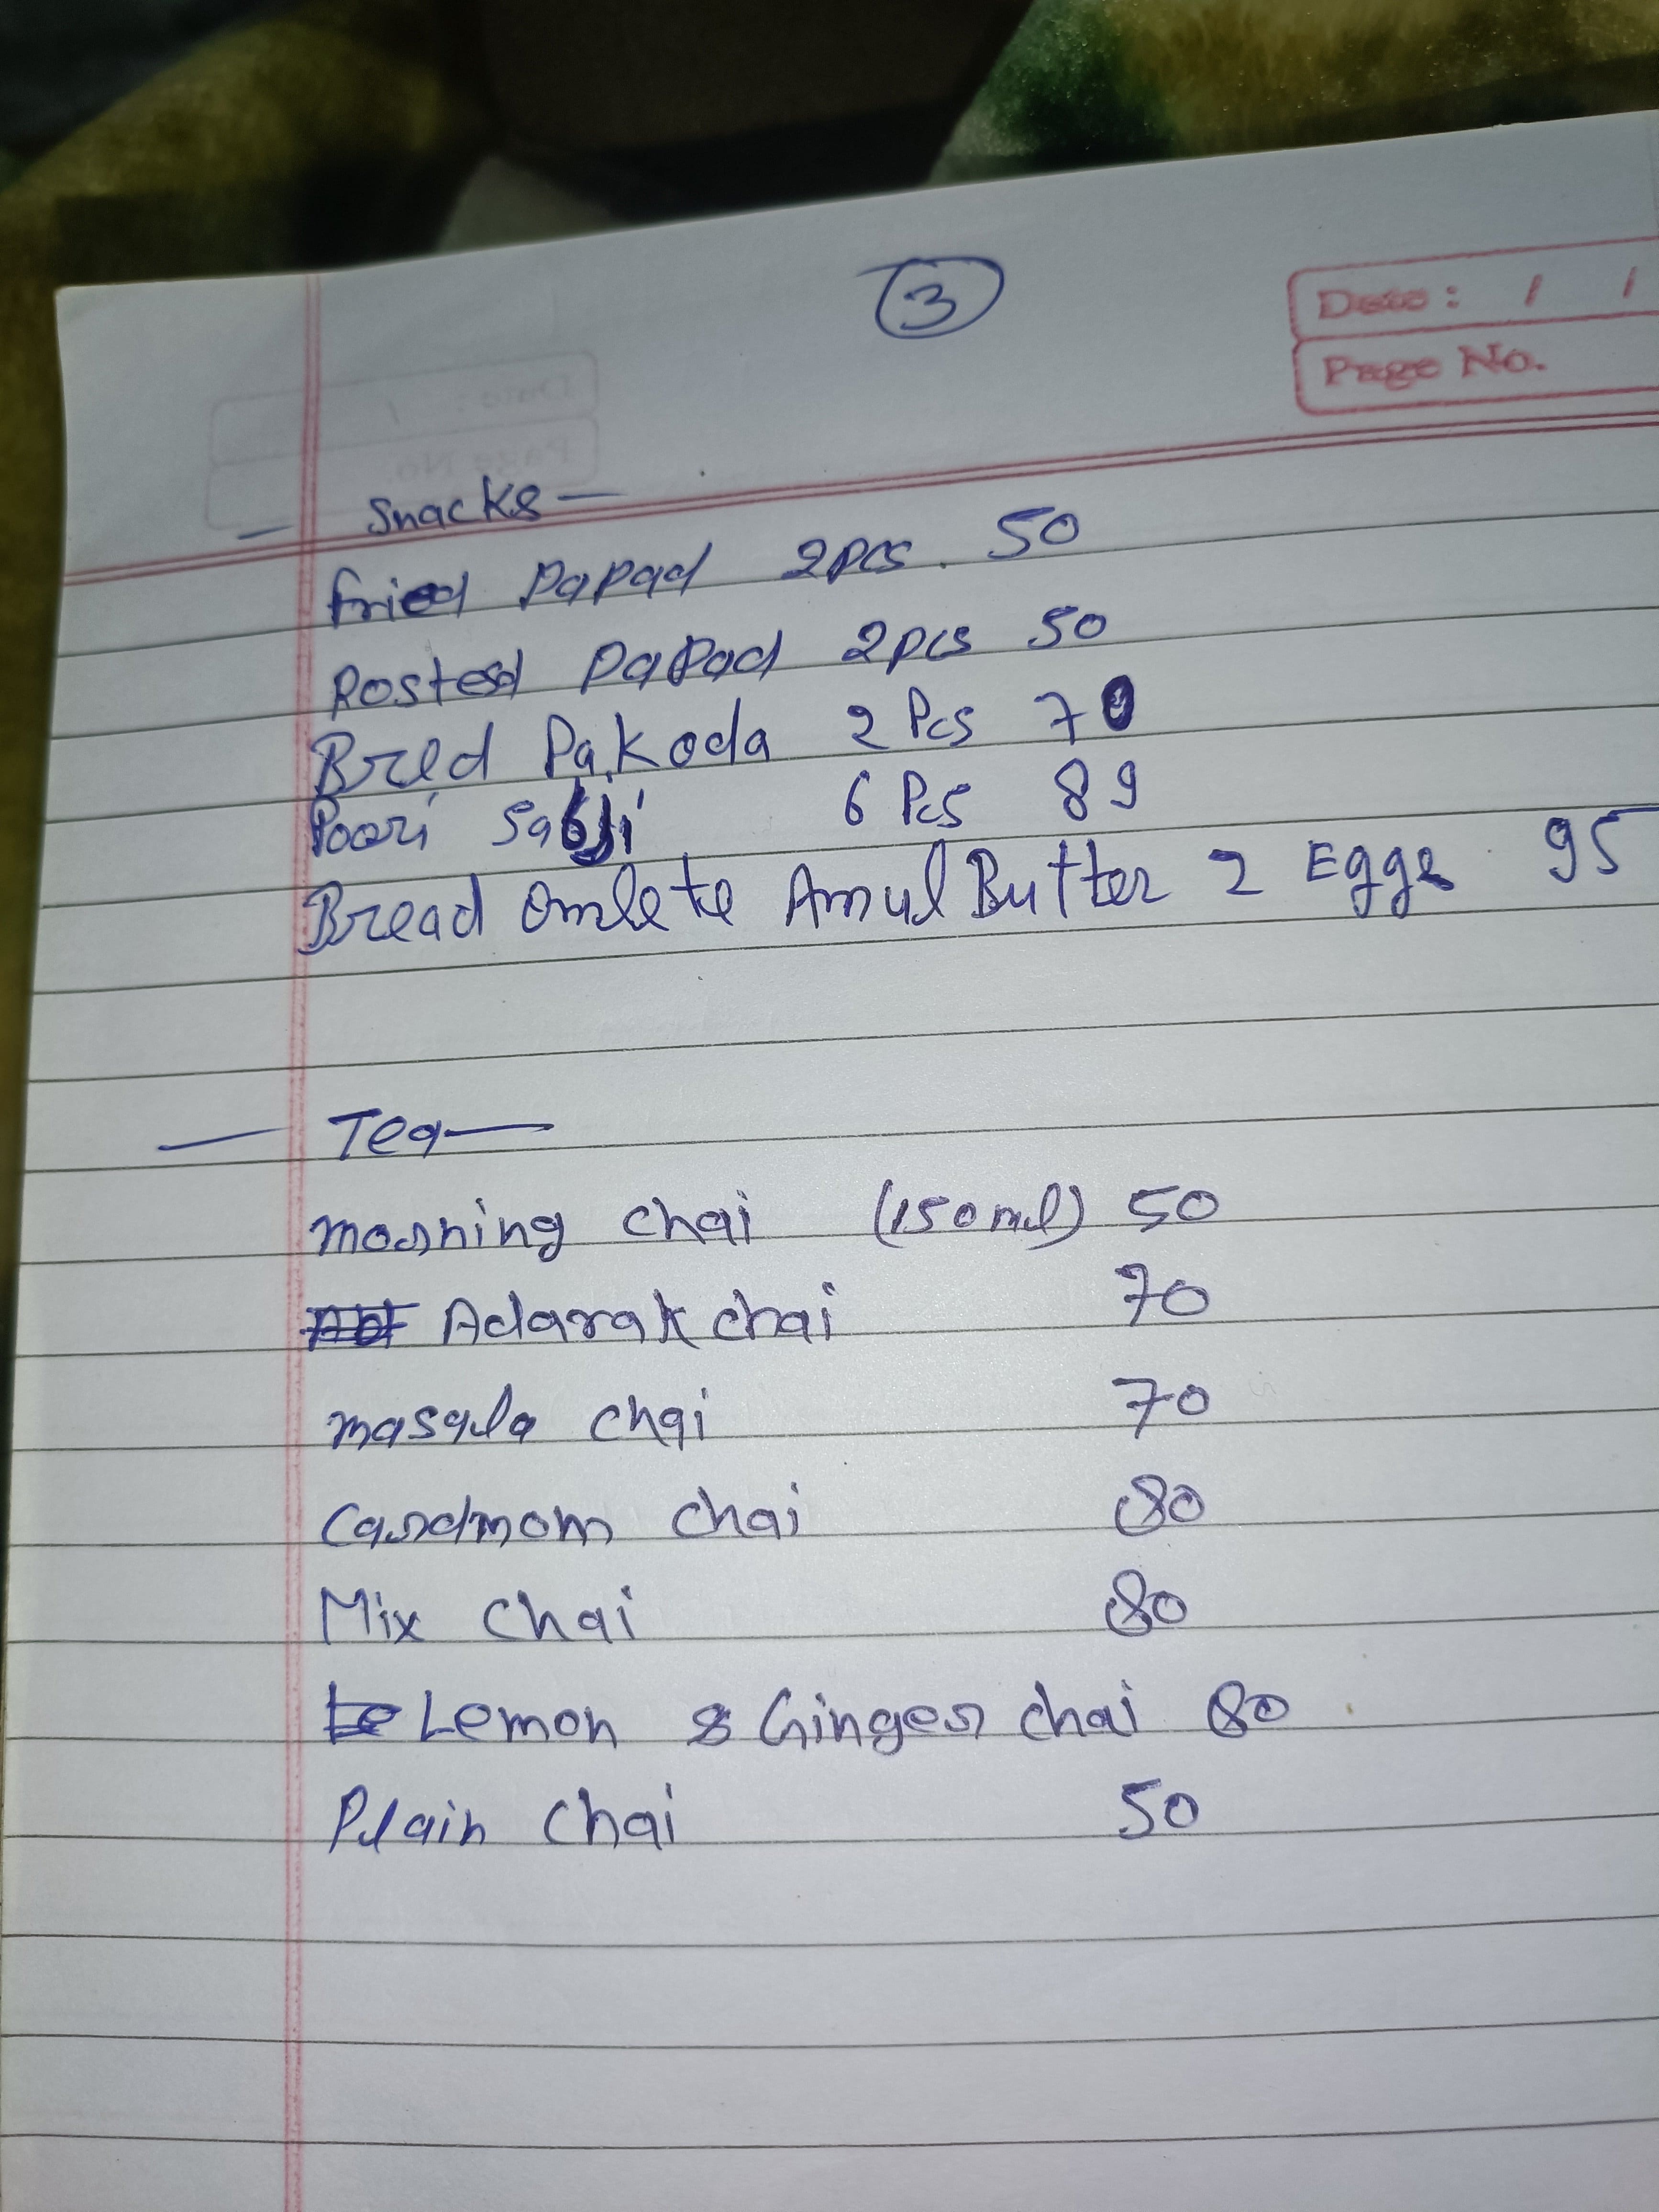 3
Date: / /
Page No.
- Snacks -
fried papad 2pcs. 50
Rosted papad 2pcs 50
Bred Pakoda 2 Pcs 70
Poori Sabji 6 Pcs 89
Bread Omlete Amul Butter 2 Eggs 95
- Tea -
morning chai (150ml) 50
Adarak chai 70
masala chai 70
Cardmom chai 80
Mix chai 80
Lemon & Ginger chai 80
Plain chai 50